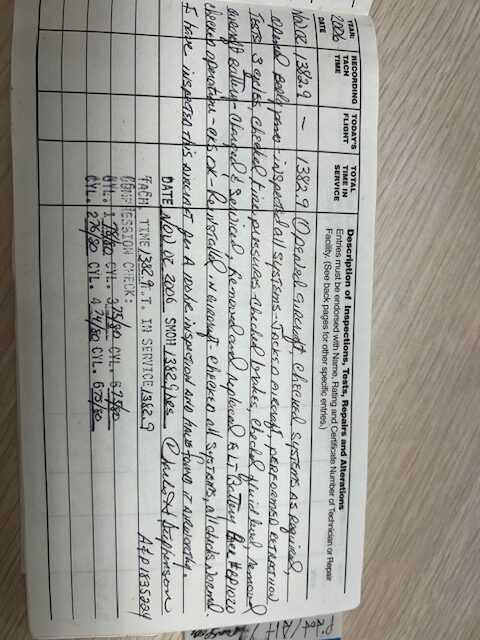 YEAR: 2006
DATE
RECORDING TACH TIME
TODAY'S FLIGHT
TOTAL TIME IN SERVICE
Description of Inspections, Tests, Repairs and Alterations
Entries must be endorsed with Name, Rating and Certificate Number of Technician or Repair
Facility. (See back pages for other specific entries.)
Nov 02 1382.9 – 1382.9 Opened aircraft, checked systems as required,
opened inspected all systems - Jacked aircraft, performed retraction
Tests 3 cycles, checked tire pressures, checked brakes, checked fluid level, removed
aircraft battery - charged & serviced, removed and replaced ELT Battery
checked operation - cks ok - Reinstalled in aircraft - checked all systems, all checks normal.
I have inspected this aircraft for A 100 hr. inspection and have found it airworthy.
DATE Nov 02 2006 SMOH 1382.9 hrs
TACH TIME 1382.9 T. T. IN SERVICE 1382.9
A&P 1835224
COMPRESSION CHECK:
CYL. 1 78/80 CYL. 3 75/80 CYL. 5 /80
CYL. 2 76/80 CYL. 4 /80 CYL. 6 75/80